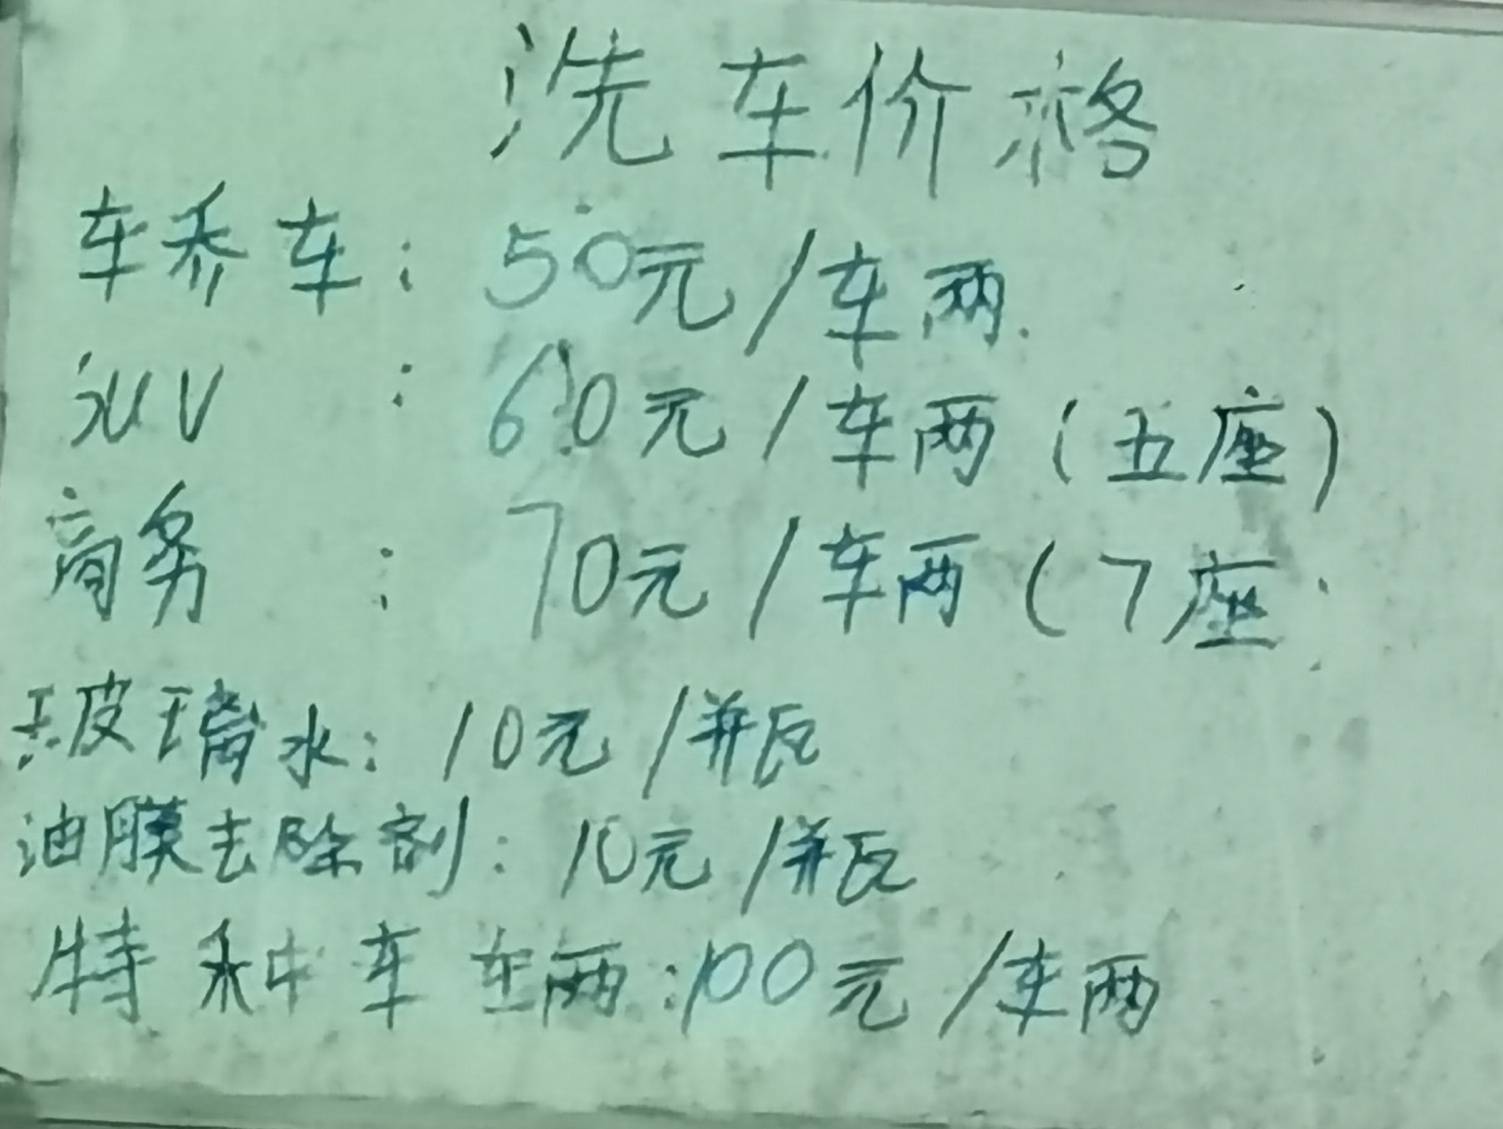 洗车价格
轿车:50元/辆.
suv:60元/辆(五座)
商务:70元/辆(7座
玻璃水:10元/瓶
油膜去除剂:10元/瓶
特种车辆:100元/辆